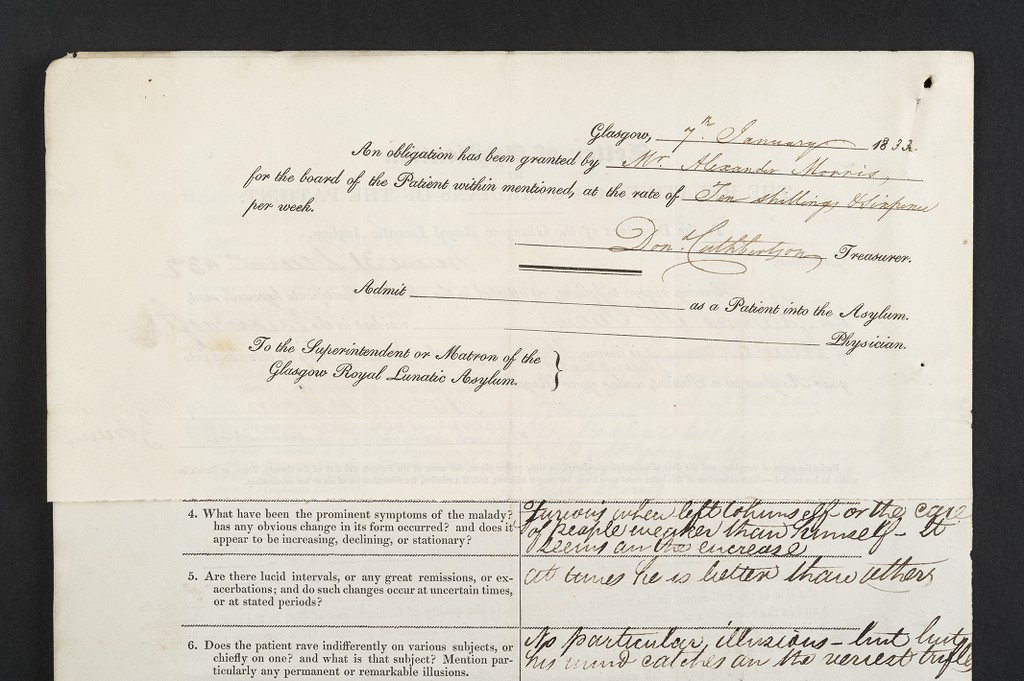 Glasgow, 7th January 1833.
An obligation has been granted by Mr. Alexander Morris,
for the board of the Patient within mentioned, at the rate of Ten shillings & sixpence
per week.
Don. Cuthbertson Treasurer.
Admit as a Patient into the Asylum.
Physician.
To the Superintendent or Matron of the
Glasgow Royal Lunatic Asylum.
4. What have been the prominent symptoms of the malady?
has any obvious change in its form occurred? and does it
appear to be increasing, declining, or stationary?
Furious when left to himself or the care
of people weaker than himself - It
seems on the encrease
5. Are there lucid intervals, or any great remissions, or ex-
acerbations; and do such changes occur at uncertain times,
or at stated periods?
at times he is better than others
6. Does the patient rave indifferently on various subjects, or
chiefly on one? and what is that subject? Mention par-
ticularly any permanent or remarkable illusions.
No particular illusions - but
his mind catches on the veriest trifle